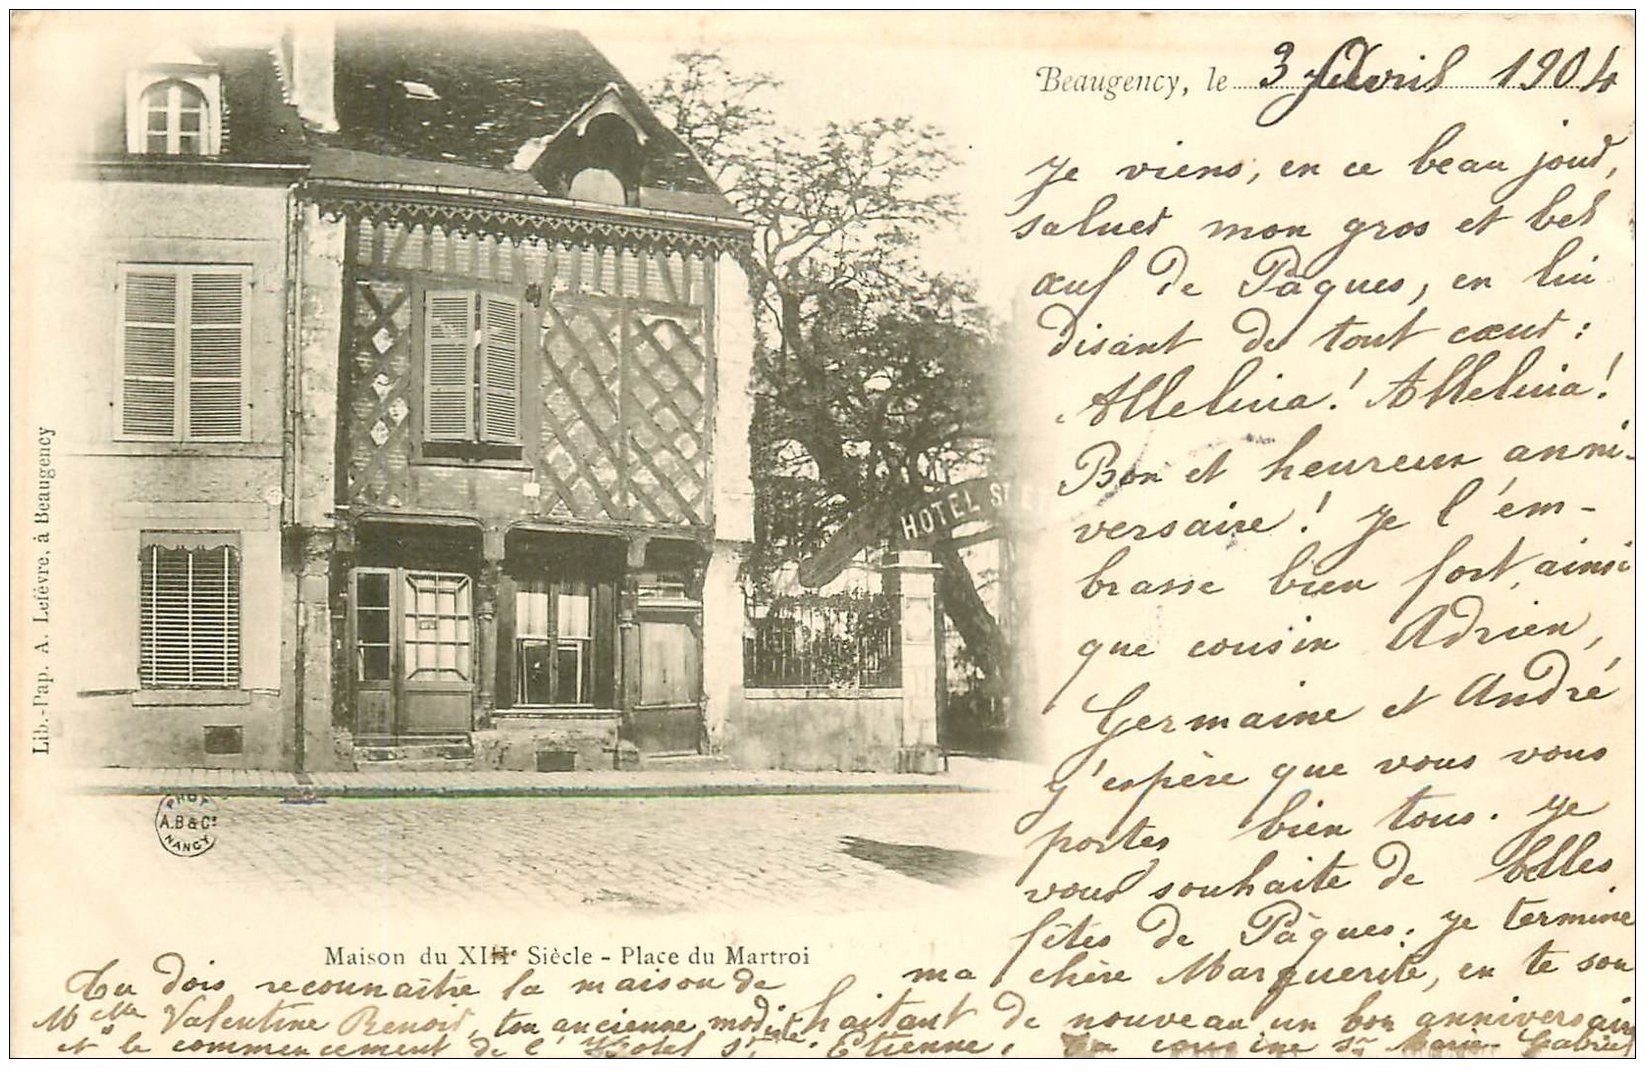 Beaugency, le 3 Avril 1904
Je viens, en ce beau jour,
saluer mon gros et bel
œuf de Pâques, en lui
disant de tout cœur :
Alleluia! Alleluia!
Bon et heureux anni-
versaire! Je l'em-
brasse bien fort, ainsi
que cousin Adrien,
Germaine et André
J'espère que vous vous
portez bien tous. Je
vous souhaite de belles
fêtes de Pâques. Je termine
ma chère Marguerite, en te sou
haitant de nouveau un bon anniversaire
Ta cousine Sr Marie-Gabriel
HOTEL ST ET
Lib.-Pap. A. Lefèvre, à Beaugency
PHOT
A.B & Cie
NANCY
Maison du XIIIe Siècle - Place du Martroi
Tu dois reconnaître la maison de
Melle Valentine Benoist, ton ancienne modiste.
et le commencement de l'Hotel St Etienne.